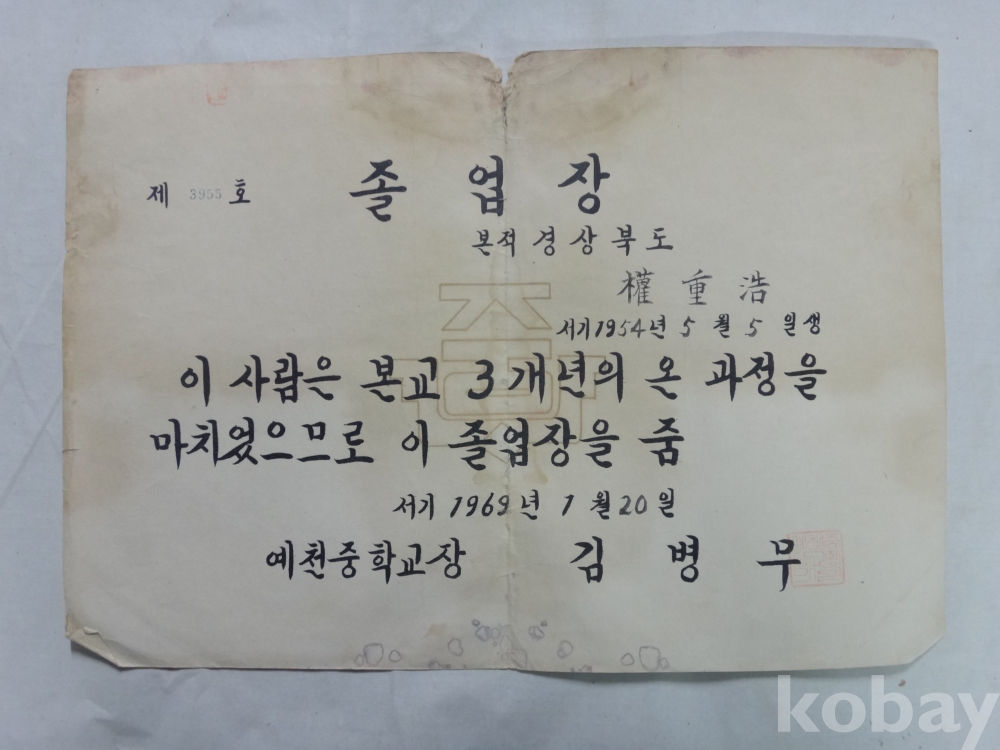 제 3955 호 졸업장
본적 경상북도
權重浩
서기 1954년 5월 5일생
이 사람은 본교 3개년의 온 과정을
마치었으므로 이 졸업장을 줌
서기 1969년 1월 20일
예천중학교장 김병무
kobay